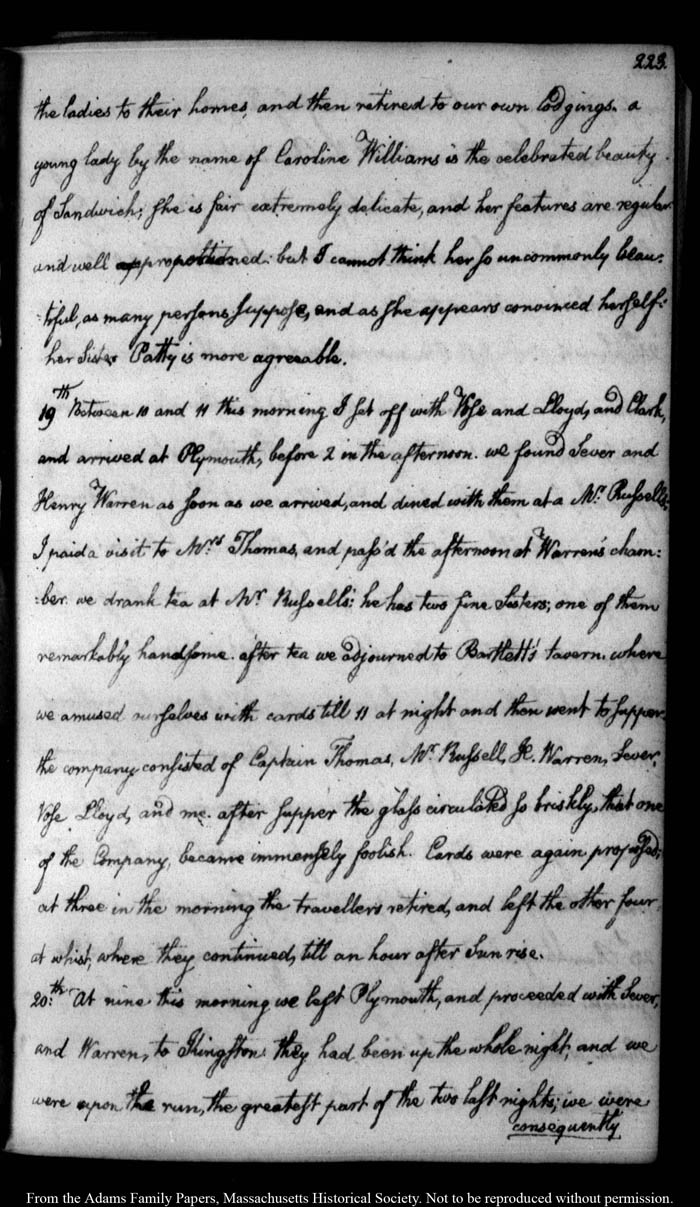 223.
the ladies to their homes, and then retired to our own lodgings. a
young lady by the name of Caroline Williams is the celebrated beauty
of Sandwich; she is fair extremely delicate, and her features are regular
and well proportioned: but I cannot think her so uncommonly beau:
:tiful, as many persons suppose, and as she appears convinced herself:
her Sister Patty is more agreeable.
19th Between 10 and 11 this morning I set off with Vose and Lloyd, and Clark,
and arrived at Plymouth, before 2 in the afternoon. we found Sever and
Henry Warren as soon as we arrived, and dined with them at a Mr. Russell's,
I paid a visit to Mrs. Thomas, and pass'd the afternoon at Warren's cham:
:ber. we drank tea at Mr Russells: he has two fine Sisters; one of them
remarkably handsome. after tea we adjourned to Bartlett's tavern. where
we amused ourselves with cards till 11 at night and then went to supper.
the company consisted of Captain Thomas, Mr. Russell, H. Warren, Sever,
Vose Lloyd, and me. after supper the glass circulated so briskly, that one
of the Company, became immensely foolish. Cards were again proposed;
at three in the morning the travellers retired, and left the other four,
at whist, where they continued, till an hour after Sun rise.
20th. At nine this morning we left Plymouth, and proceeded with Sever,
and Warren, to Kingston: they had been up the whole night, and we
were upon the run, the greatest part of the two last nights; we were
consequently
From the Adams Family Papers, Massachusetts Historical Society. Not to be reproduced without permission.